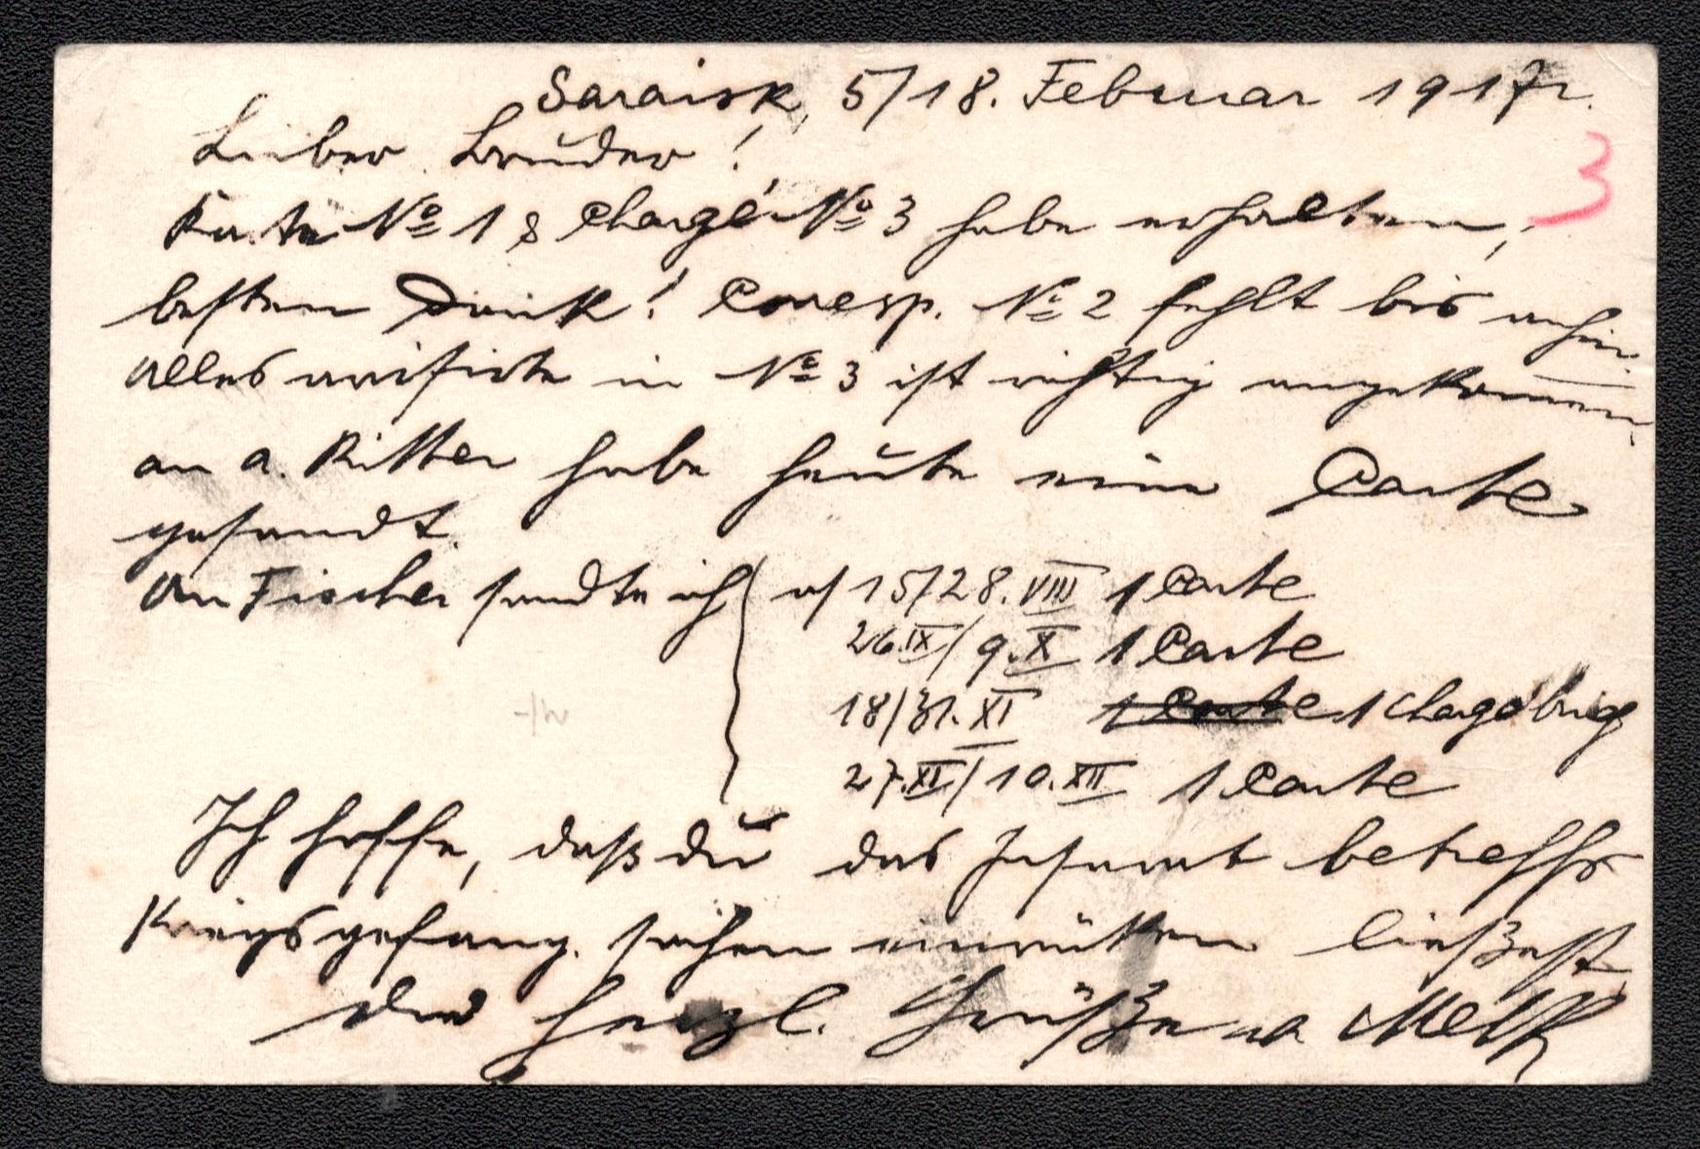 Saraisk, 5/18. Februar 1917
3
Lieber Bruder!
Karte № 1 & Chargé № 3 habe erhalten,
besten Dank! Corresp. № 2 fehlt bis
Alles in № 3 ist richtig angekommen,
an a. Ritter habe heute eine Carte
gesandt.
An Fischer sandte ich 15/28. VIII 1 Carte
26.IX/9.X 1 Carte
18/31. XI 1 Carte 1 Chargébrief
27.XI/10.XII 1 Carte
Ich hoffe, daß du das Inserat betreffs
Kriegsgefang. einrücken ließest
herzl. Grüße